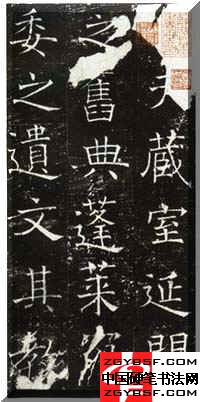 夫藏室延
之舊典蓬萊
委之遺文其教
ZGYBSF.COM
中国硬笔书法网
ZGYBSF.COM